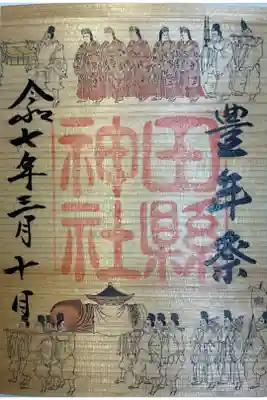 豊年祭
田縣
神社
令七年三月十日